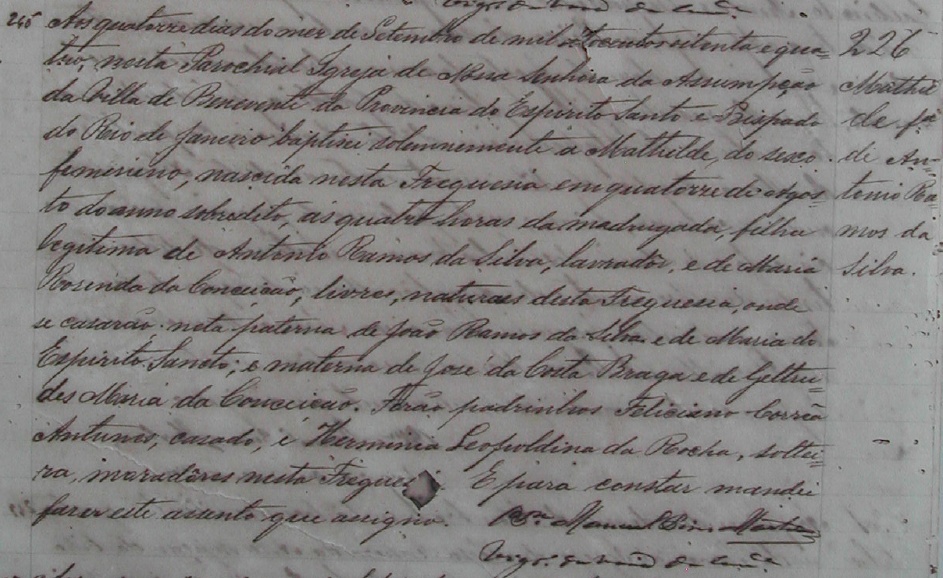 245
Aos quatorze dias do mez de Setembro de mil oitocentos setenta e qua=
tro, nesta Parochial Igreja de Nossa Senhora da Assumpção
da Villa de Benevente da Provincia do Espirito Santo e Bispado
do Rio de Janeiro baptisei solemnemente a Mathilde, do sexo
femenino, nascida nesta Freguesia em quatorze de Agos=
to do anno sobredito, ás quatro horas da madrugada, filha
legitima de Antonio Ramos da Silva, lavrador, e de Maria
Rosinda da Conceicão, livres, naturaes desta Freguesia, onde
se casarão. neta paterna de João Ramos da Silva e de Maria do
Espirito Sancto, e materna de José da Costa Braga e de Geltru=
des Maria da Conceicão. Forão padrinhos Feliciano Corrêa
Antunes, casado, e Herminia Leopoldina da Rocha, soltei=
ra, moradores nesta Fregues E para constar mandei
fazer este assento que assigno. Manuel
226
Mathil
de fa
de An=
tonio Ra
mos da
Silva.